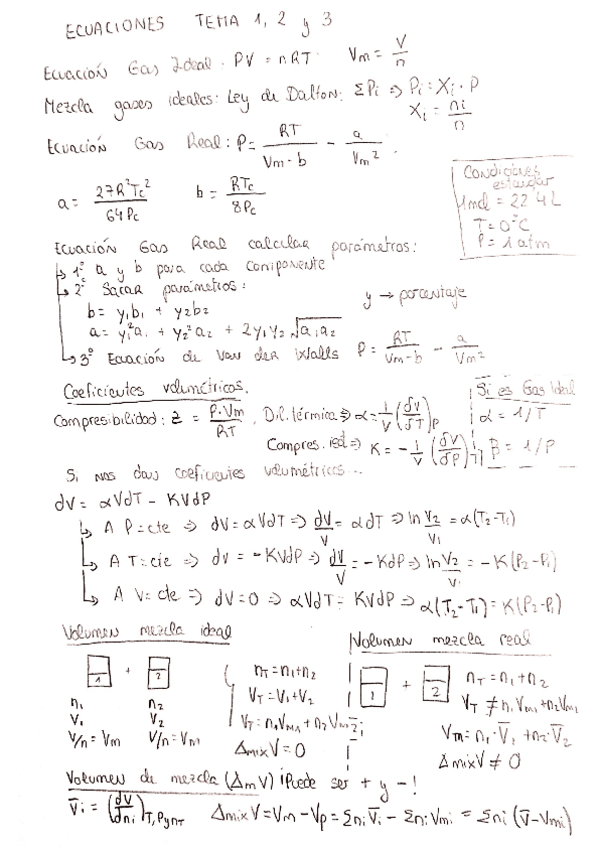 ECUACIONES TEMA 1, 2 y 3
Ecuación Gas Ideal: PV = nRT. Vm = V/n
Mezcla gases ideales: Ley de Dalton: ΣPi => Pi = Xi · P
Xi = ni/n
Ecuación Gas Real: P = RT/(Vm - b) - a/Vm²
a = 27R²Tc²/64Pc b = RTc/8Pc
Condiciones estandar
1mol = 22'4L
T = 0°C
P = 1 atm
Ecuación Gas Real calcular parámetros:
↳ 1º a y b para cada componente
↳ 2º Sacar parámetros:
y → porcentaje
b = y₁b₁ + y₂b₂
a = y₁²a₁ + y₂²a₂ + 2y₁y₂√a₁a₂
↳ 3º Ecuación de Van der Walls P = RT/(Vm - b) - a/Vm²
Coeficientes volumétricos.
Compresibilidad: z = P·Vm/RT. Dil. térmica => α = 1/V (δV/δT)P
Compres. => K = - 1/V (δV/δP)T
Si es Gas Ideal
α = 1/T
β = 1/P
Si nos dan coeficientes volumétricos...
dV = αVdT - KVdP
↳ A P = cte => dV = αVdT => dV/V = αdT => ln V₂/V₁ = α(T₂-T₁)
↳ A T = cte => dV = -KVdP => dV/V = -KdP => ln V₂/V₁ = -K(P₂-P₁)
↳ A V = cte => dV = 0 => αVdT = KVdP => α(T₂-T₁) = K(P₂-P₁)
Volumen mezcla ideal
1 + 2
n₁ n₂
V₁ V₂
V/n = Vm V/n = Vm
nT = n₁+n₂
VT = V₁+V₂
VT = n₁Vm₁ + n₂Vm₂
ΔmixV = 0
Volumen mezcla real
1 + 2
nT = n₁+n₂
VT ≠ n₁Vm₁ + n₂Vm₂
Vm = n₁·V̄₁ + n₂·V̄₂
ΔmixV ≠ 0
Volumen de mezcla (ΔmV) ¡Puede ser + y -!
V̄i = (dV/dni)T,P y nT ΔmixV = Vm - Vp = ΣniV̄i - ΣniVmi = Σni (V̄-Vmi)